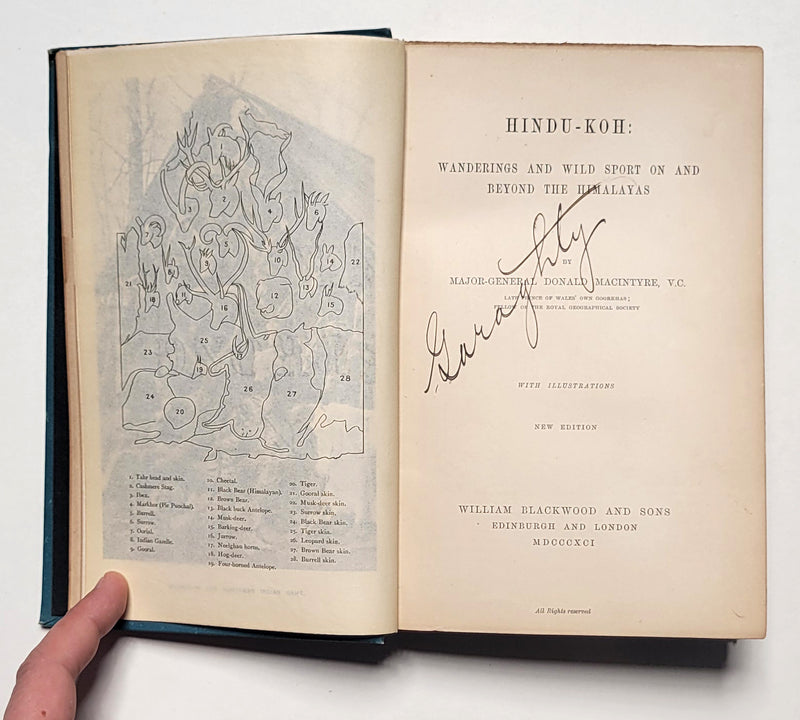 1. Tahr head and skin.
2. Cashmere Stag.
3. Ibex.
4. Markhor (Pir Punchal).
5. Burrell.
6. Surrow.
7. Oorial.
8. Indian Gazelle.
9. Gooral.
10. Cheetal.
11. Black Bear (Himalayan).
12. Brown Bear.
13. Black buck Antelope.
14. Musk-deer.
15. Barking-deer.
16. Jurrow.
17. Neelghau horns.
18. Hog-deer.
19. Four-horned Antelope.
20. Tiger.
21. Gooral skin.
22. Musk-deer skin.
23. Surrow skin.
24. Black Bear skin.
25. Tiger skin.
26. Leopard skin.
27. Brown Bear skin.
28. Burrell skin.
HINDU-KOH:
WANDERINGS AND WILD SPORT ON AND
BEYOND THE HIMALAYAS
Garaghty
BY
MAJOR-GENERAL DONALD MACINTYRE, V.C.
LATE PRINCE OF WALES' OWN GOORKHAS;
FELLOW OF THE ROYAL GEOGRAPHICAL SOCIETY
WITH ILLUSTRATIONS
NEW EDITION
WILLIAM BLACKWOOD AND SONS
EDINBURGH AND LONDON
MDCCCXCI
All Rights reserved